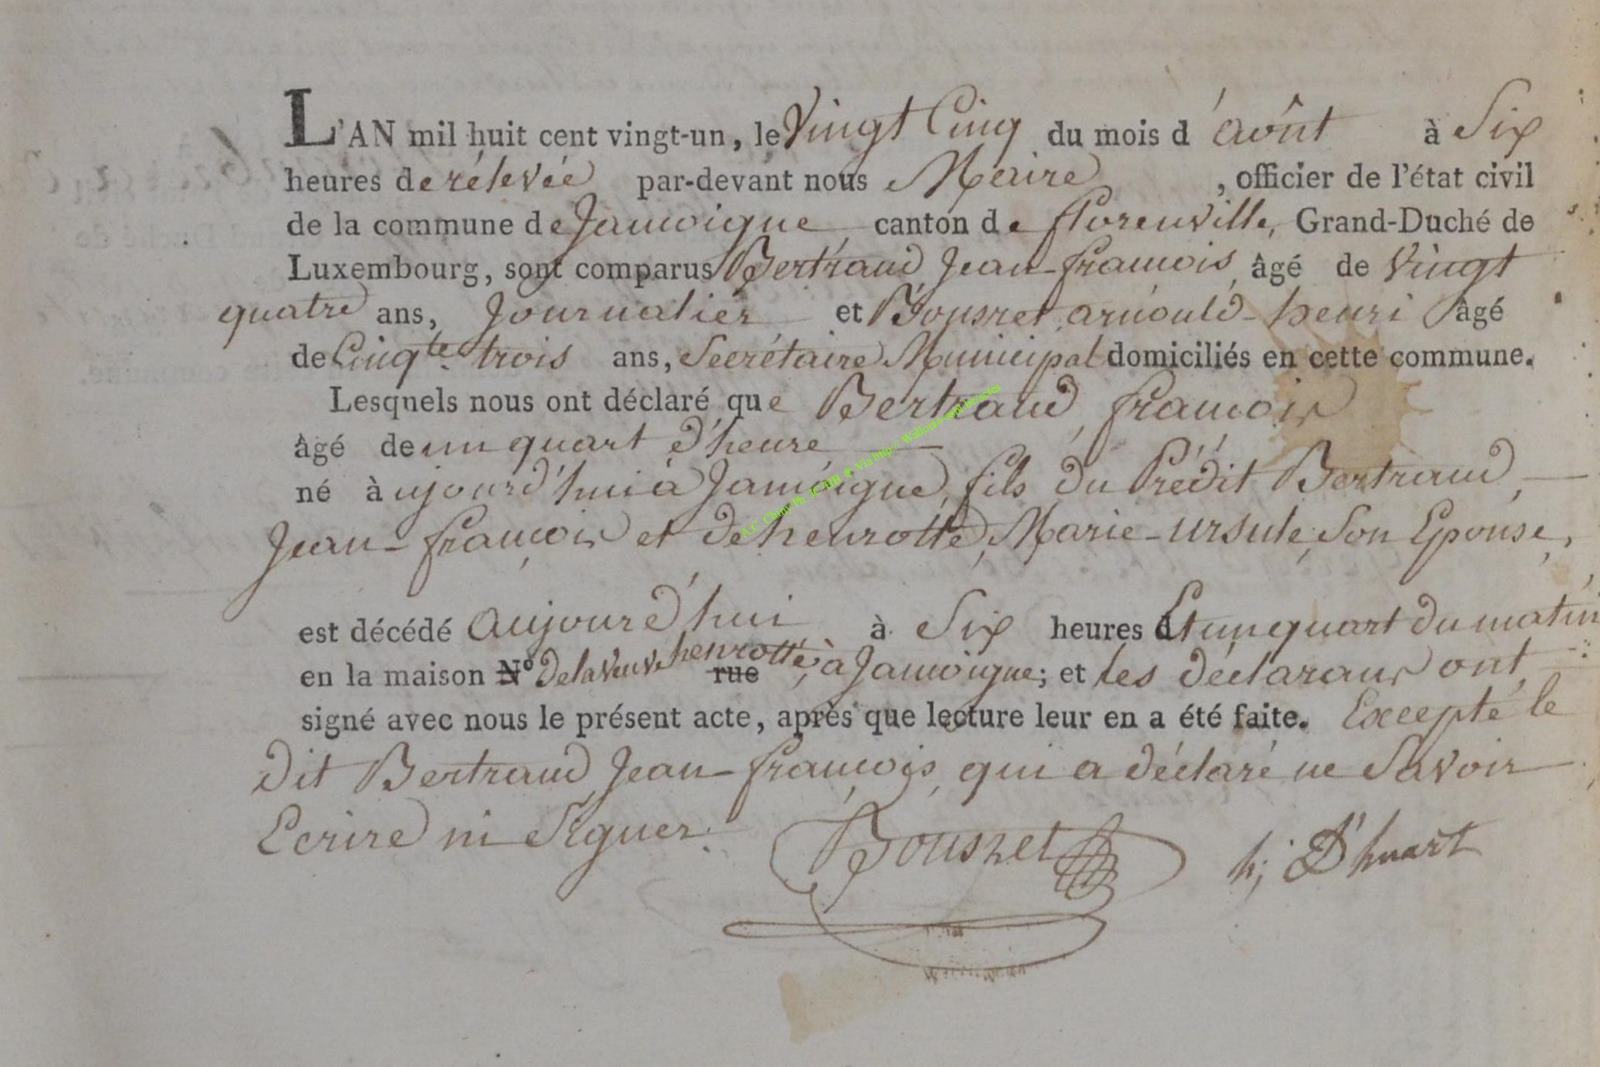 L'AN mil huit cent vingt-un, le Vingt Cinq du mois d'août à Six
heures de rélevée par-devant nous Maire, officier de l'état civil
de la commune de Jamoigne canton de florenville, Grand-Duché de
Luxembourg, sont comparus Bertrand Jean-francois âgé de Vingt
quatre ans, Journalier et Bousret arnould-henri âgé
de Cinqte trois ans, Secrétaire Municipal domiciliés en cette commune.
Lesquels nous ont déclaré que Bertrand, francois
âgé de un quart d'heure
né aujourd'hui à Jamoigne, fils du Prédit Bertrand,
Jean-françois et de henrotte, Marie-ursule, Son Epouse,
est décédé aujourd'hui à Six heures Et un quart du matin
en la maison N° de la veuve henrotte, rue à Jamoigne; et les déclarans ont
signé avec nous le présent acte, après que lecture leur en a été faite. Excepté le
dit Bertrand Jean-françois, qui a déclaré ne Savoir
Ecrire ni Signer.
Bousret h; D'huart